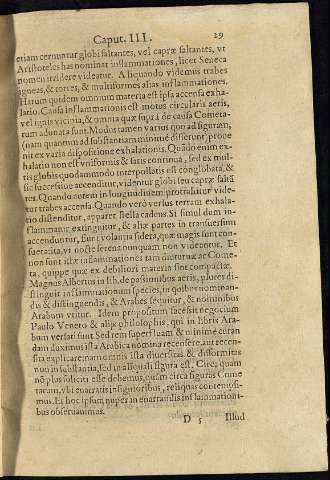 Caput. III. 29
etiam cernuntur globi saltantes, vel capræ saltantes, vt
Aristoteles has nominat inflammationes, licet Seneca
nomen irridere videatur. Aliquando videmus trabes
igneas, & torres, & multiformes alias inflammationes.
Harum quidem omnium materia est ipsa accensa exha-
latio. Causa inflammationis est motus circularis aeris,
vel ignis vicinia, & omnia quæ supra de causa Cometa-
rum adunata sunt. Modus tamen varius quo ad figuram,
(nam quantum ad substantiam minime disserunt) proue-
nit ex varia dispositione exhalationis. Quādo enim ex-
halatio non est vniformis & satis continua, sed ex mul-
tis globis quodammodo interpollatis est conglobata, &
sic successiue accenditur, videntur globi seu capræ saltā
tes. Quando autem in longitudinem protrahitur vide-
tur trabes accensa. Quando verò versus terram exhala-
tio distenditur, apparet stella cadens. Si simul dum in-
flammatur extinguitur, & aliæ partes in transuersum
accenduntur, sunt volantia sidera, quæ magis sunt con-
sueta ita, vt nocte serena nunquam non videantur. Et
non sunt aliæ inflammationes tam diuturnæ ac Come-
ta, quippe quæ ex debiliori materia sint compactæ.
Magnus Albertus in lib. de passionibus aeris, plures di-
stinguit inflammationum species, in quibus nominan-
dis & distinguendis, & Arabes sequitur, & nominibus
Arabum vtitur. Idem propositum facessit negocium
Paulo Veneto & alijs philosophis, qui in libris Ara-
bum versati sunt. Sed rem superfluam & minime curan
dam duximus ista Arabica nomina recensere, aut recen-
sita explicare, nam omnis ista diuersitas & difformitas
non in substantia, sed in aliquali figura est. Circa quam
nō plus soliciti esse debemus, quàm circa figuras Come
tarum, vbi enarratis insignioribus, reliquas contempsi-
mus. Et hoc ipsum nuper in enarrandis inflammationi-
bus obseruauimus.
D 5 Illud